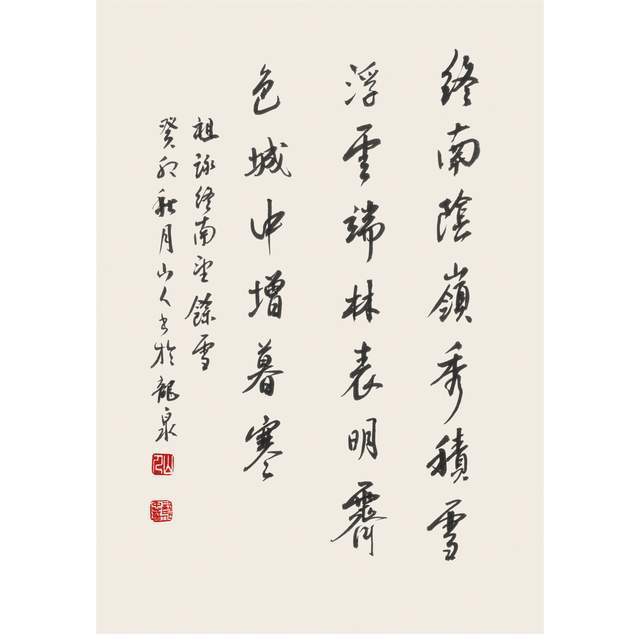 終南陰嶺秀積雪
浮雲端林表明霽
色城中增暮寒
祖詠終南望餘雪
癸卯秋月山人書於龍泉
山人